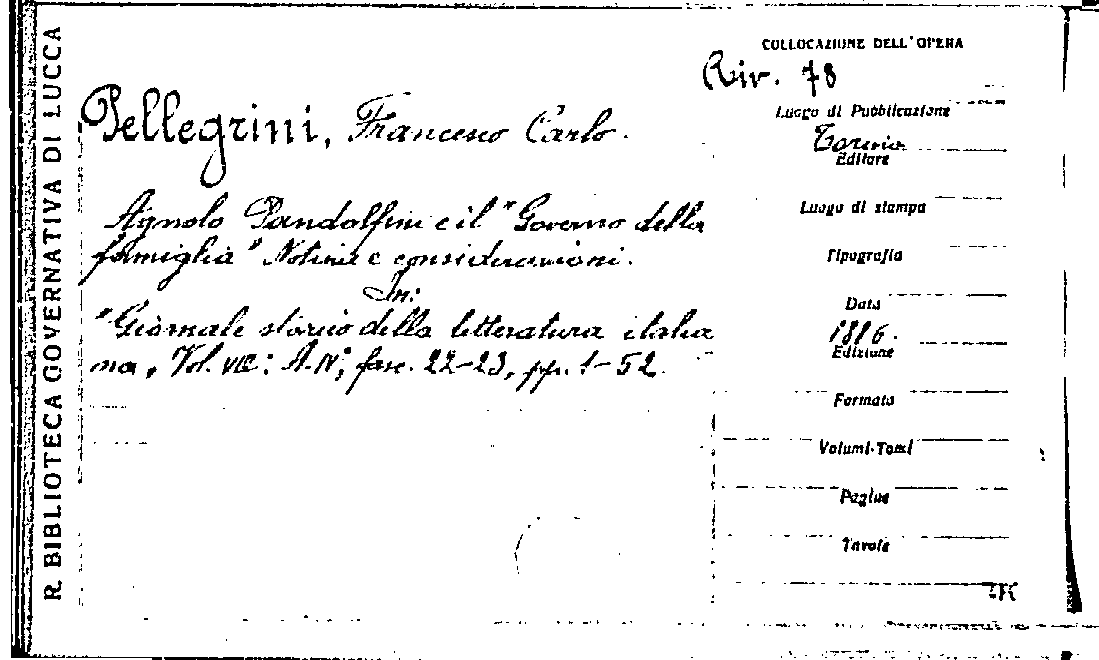 R. BIBLIOTECA GOVERNATIVA DI LUCCA
COLLOCAZIONE DELL'OPERA
Riv. 78
Pellegrini, Francesco Carlo.
Agnolo Pandolfini e il "Governo della
famiglia" Notizie e considerazioni.
In:
"Giornale storico della letteratura italia
na, Vol. VIII: A. IV; fasc. 22-23, pp. 1-52.
Luogo di Pubblicazione
Torino
Editore
Luogo di stampa
Tipografia
Data
1886.
Edizione
Formato
Volumi-Tomi
Pagine
Tavole